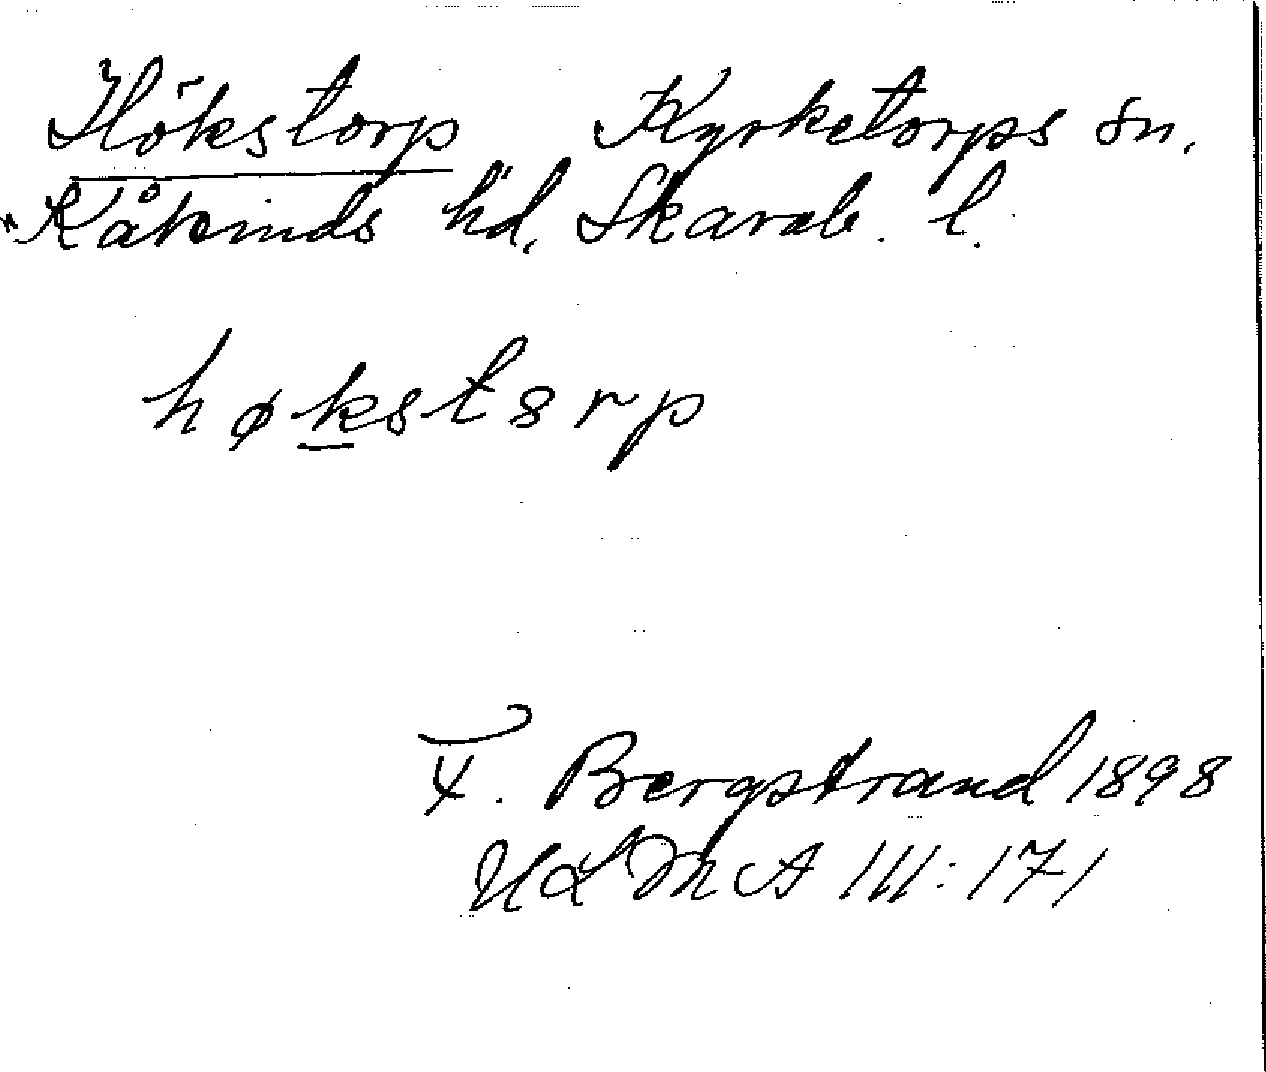 Hökstorp Kyrketorps sn.
Kåkinds hd, Skarab. l.
høkstȣrp
F. Bergstrand 1898
ULMA 111:171